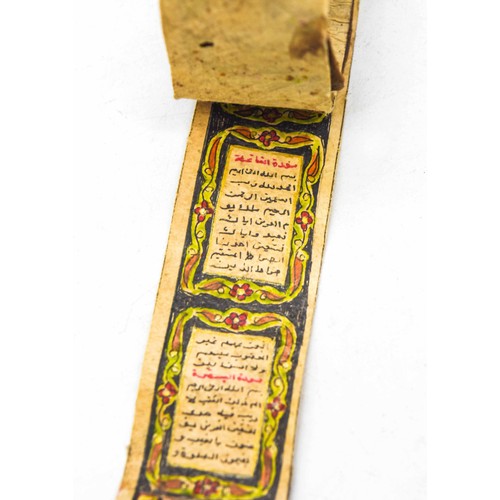 سورة الفاتحة
بسم الله الرحمن الرحيم
الحمد لله رب
العلمين الرحمن
الرحيم ملك يو
م الدين اياك
نعبد واياك
نستعين اهدنا
الصراط المستقيم
صراط الذين
انعمت عليهم غير
المغضوب عليهم
ولا الضالين
سورة البقرة
بسم الله الرحمن الرحيم
الم ذلك الكتب لا
ريب فيه هدى
للمتقين الذين يؤ
منون بالغيب و
يقيمون الصلوة و